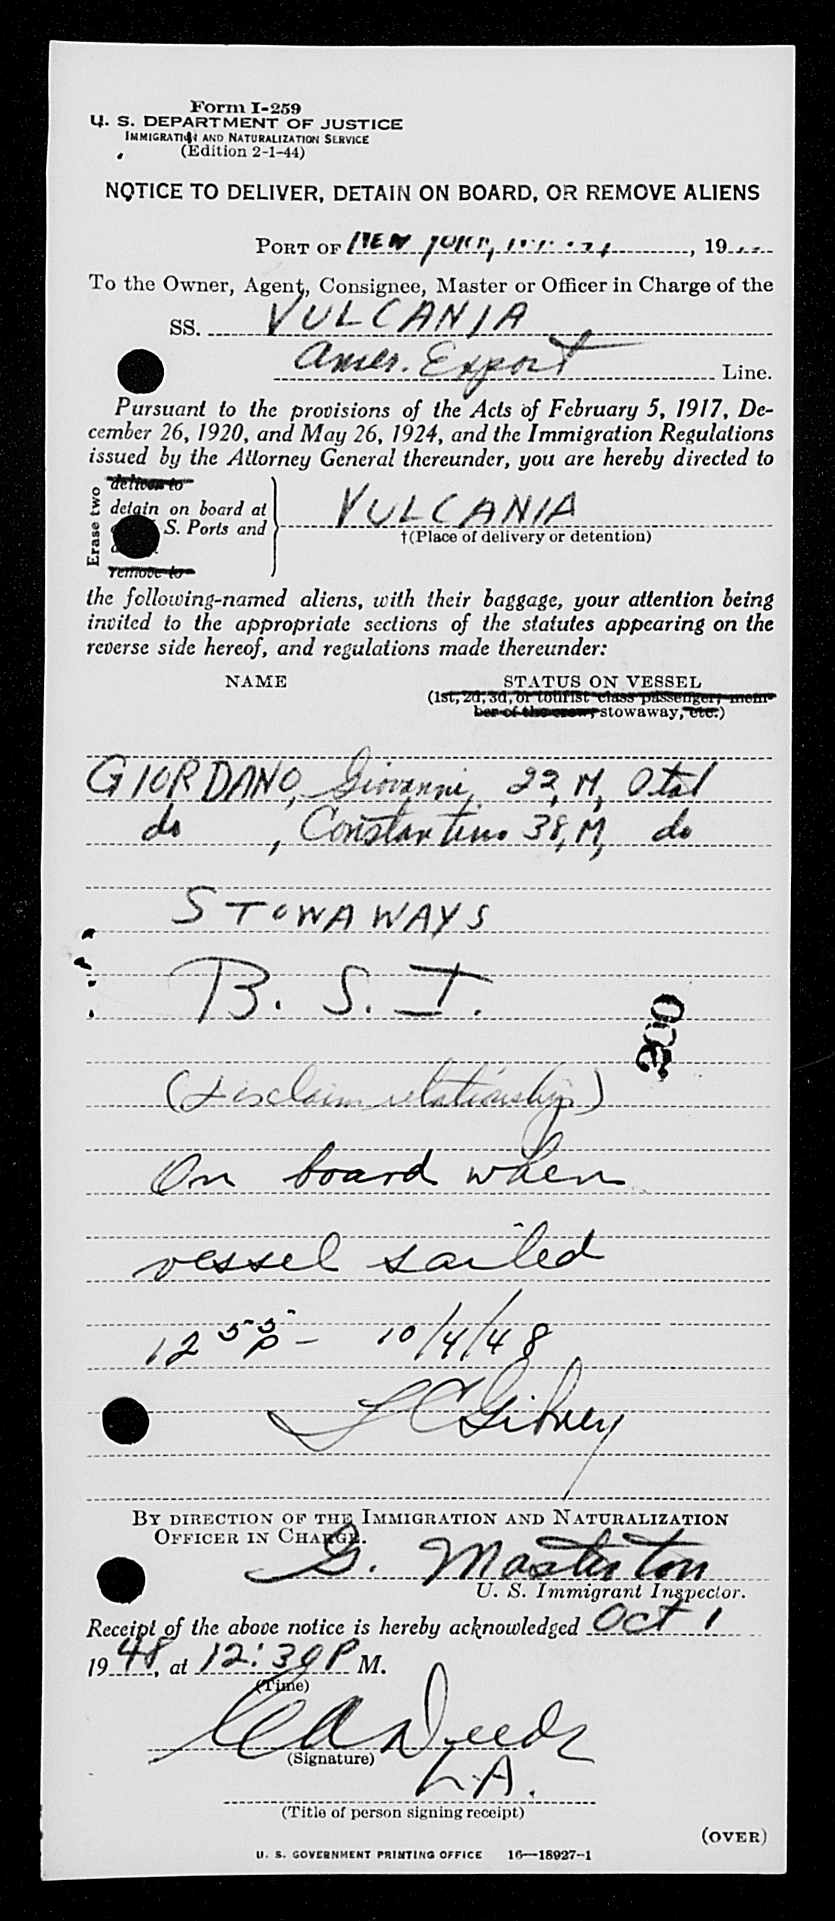 Form I-259
U. S. DEPARTMENT OF JUSTICE
IMMIGRATION AND NATURALIZATION SERVICE
(Edition 2-1-44)
NOTICE TO DELIVER, DETAIN ON BOARD, OR REMOVE ALIENS
PORT OF NEW YORK, , 19
To the Owner, Agent, Consignee, Master or Officer in Charge of the
SS. VULCANIA
Amer. Export Line.
Pursuant to the provisions of the Acts of February 5, 1917, De-
cember 26, 1920, and May 26, 1924, and the Immigration Regulations
issued by the Attorney General thereunder, you are hereby directed to
Erase two
deliver to
detain on board at
S. Ports and
remove to
VULCANIA
†(Place of delivery or detention)
the following-named aliens, with their baggage, your attention being
invited to the appropriate sections of the statutes appearing on the
reverse side hereof, and regulations made thereunder:
NAME STATUS ON VESSEL
(1st, 2d, 3d, or tourist class passenger, mem-
ber of the crew, stowaway, etc.)
GIORDANO, Giovanni, 22, M, Ital
do , Constantino 38, M, do
STOWAWAYS
B. S. I.
300
(Disclaim relationship)
On board when
vessel sailed
12 55 P - 10/4/48
L C Gibney
BY DIRECTION OF THE IMMIGRATION AND NATURALIZATION
OFFICER IN CHARGE.
G. Masterton
U. S. Immigrant Inspector.
Receipt of the above notice is hereby acknowledged Oct 1
1948, at 12:30 P M.
(Time)
(Signature)
L.A.
(Title of person signing receipt)
(OVER)
U. S. GOVERNMENT PRINTING OFFICE 16—18927-1